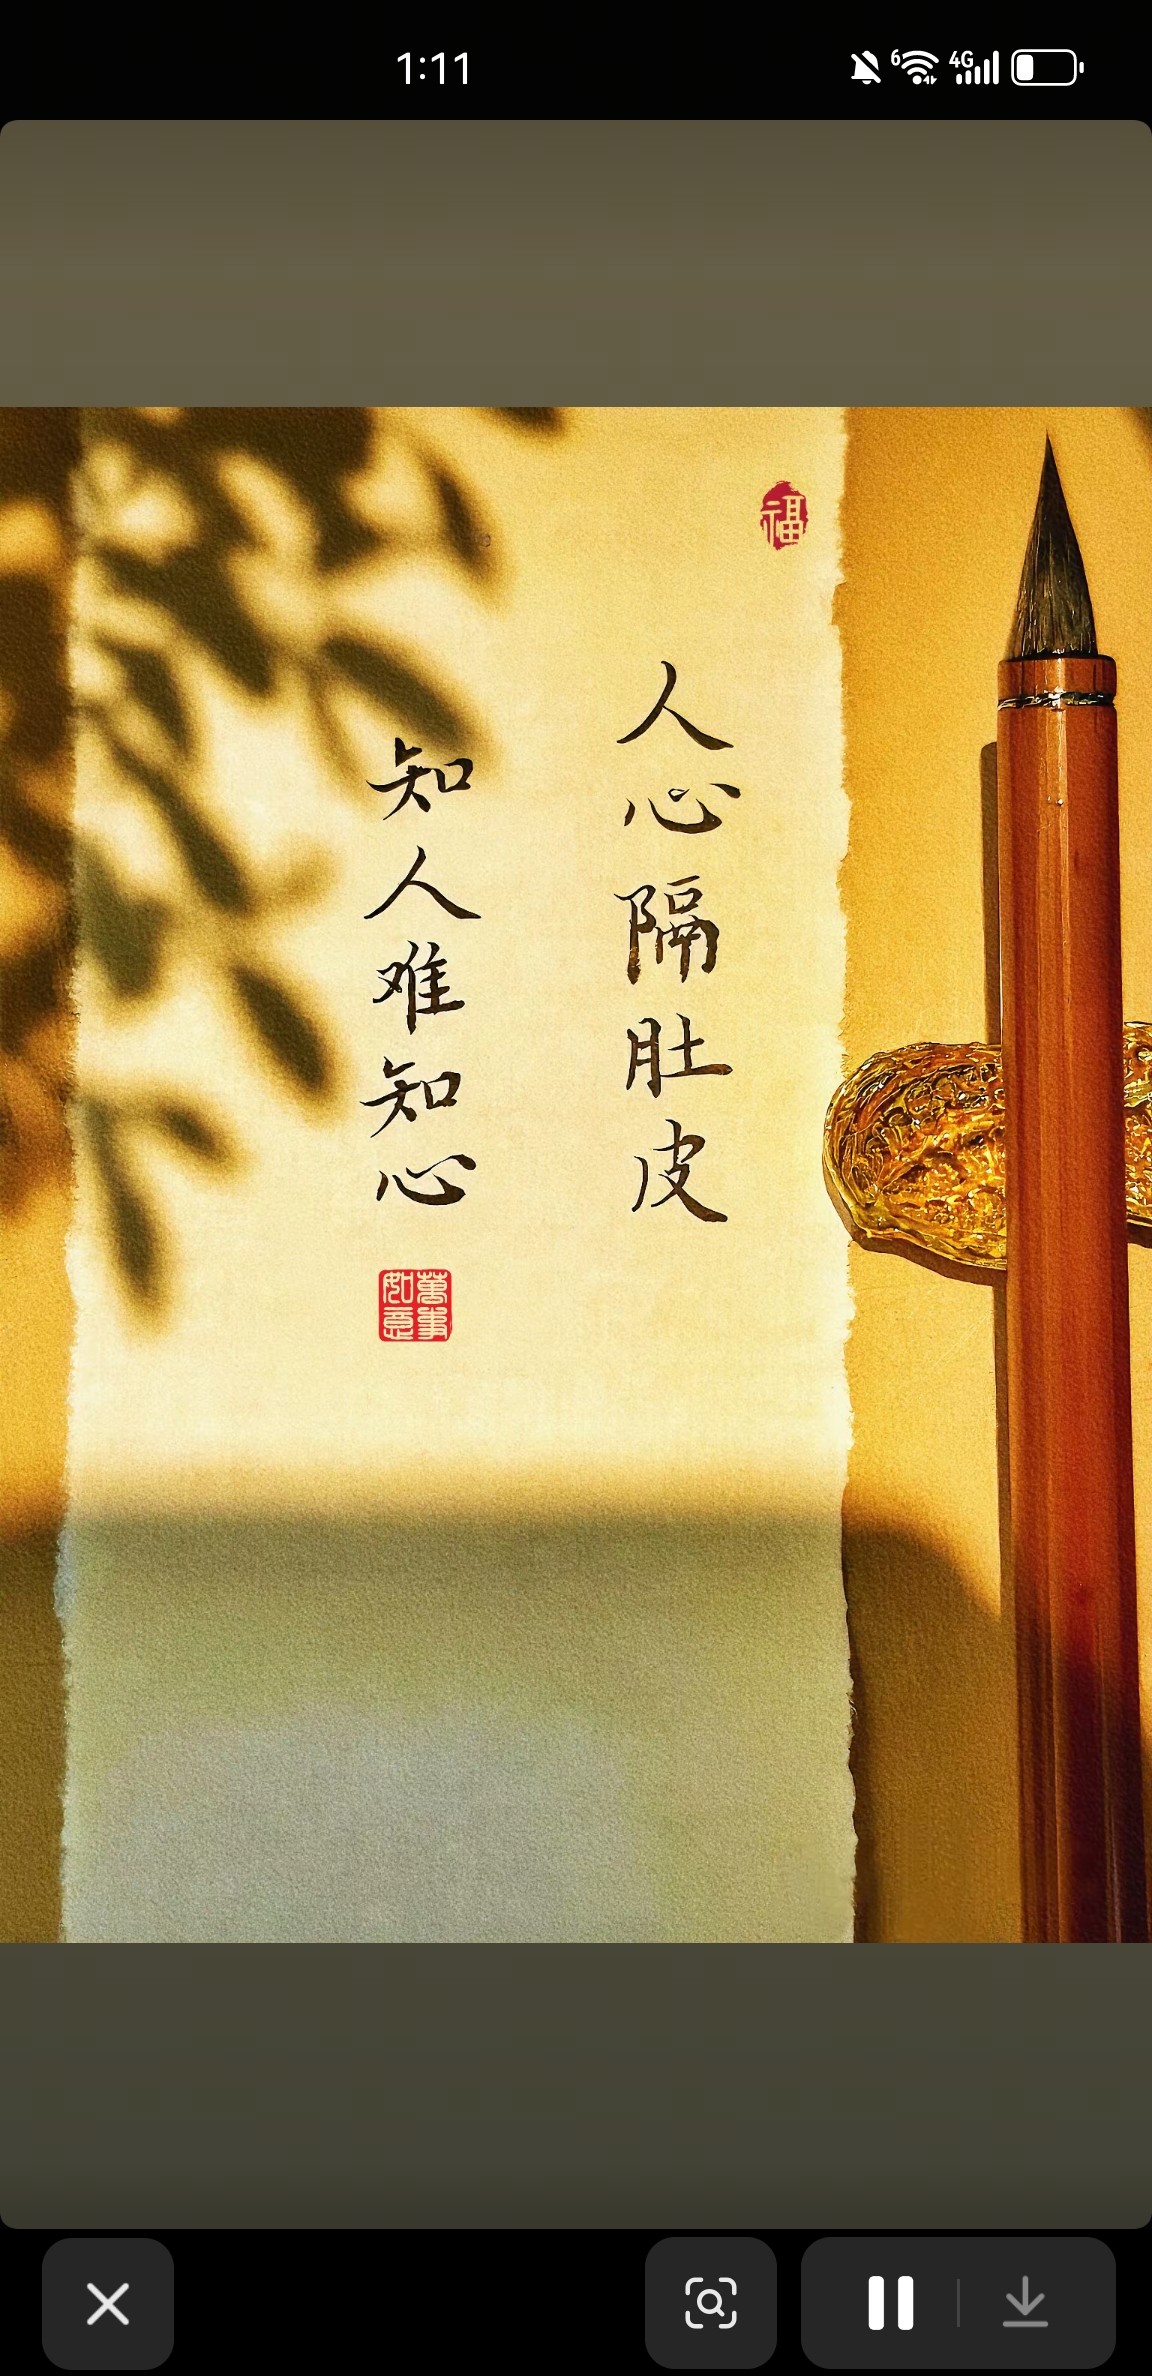 1:11
6
4G
福
人心隔肚皮
知人难知心
萬事如意